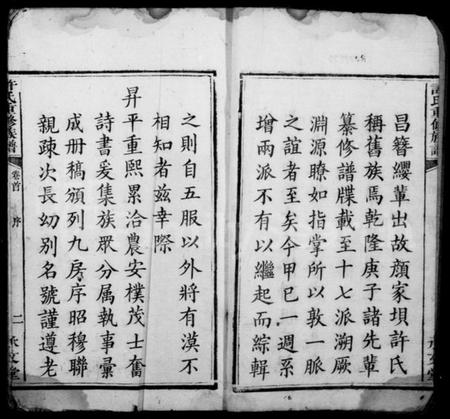 許氏重修族譜
昌簪纓輩出故顏家垻許氏
稱舊族馬乾隆庚子諸先輩
纂修譜牒載至十七派溯厥
淵源瞭如指掌所以敦一脈
之誼者至矣今甲巳一週系
增兩派不有以繼起而綜輯
之則自五服以外將有漠不
相知者茲幸際
昇平重熙累洽農安樸茂士奮
詩書爰集族眾分属執事彙
成册稿頒列九房序昭穆聯
親疎次長幼別名號謹遵老
許氏重修族譜
卷首
序
二
承文堂